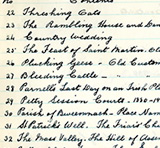 22 Threshing Oats
23 The Rambling House and
24 Country Wedding
25 The Feast of Saint Martin
26 Plucking Geese - Old Custom
27 Bleeding Cattle - "
28 Parnell's Last Day on an Irish
29 Petty Session Courts - 1850-
30 Parish of - Place Nam
31 St Patrick's Well. The Friar's
32 The Moss Valley. The Hill of